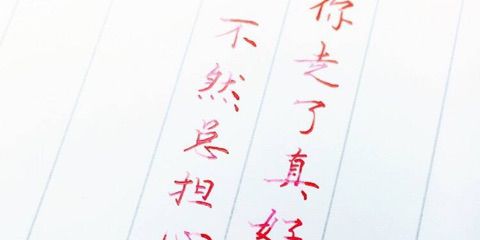 你走了真好
不然总担心